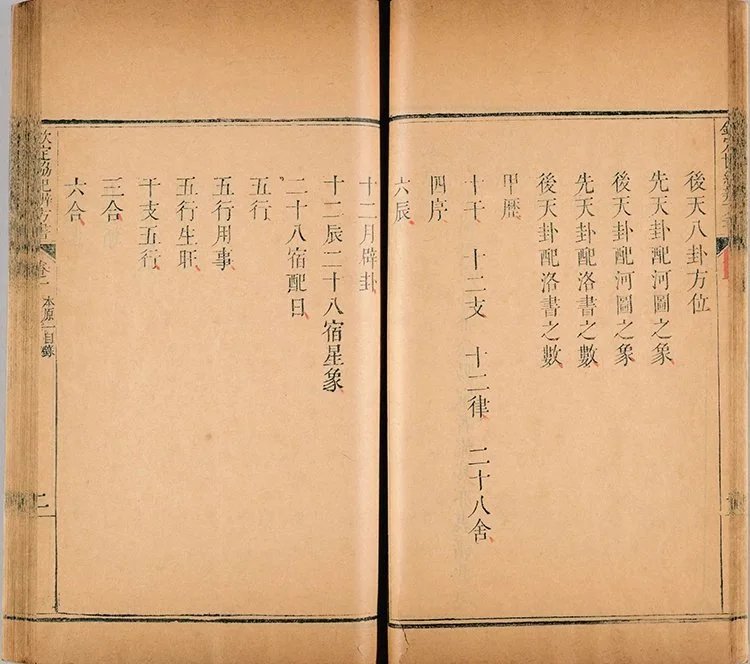 後天八卦方位
先天卦配河圖之象
後天卦配河圖之象
先天卦配洛書之數
後天卦配洛書之數
甲歷
十干 十二支 十二律 二十八舍
四序
六辰
十二月辟卦
十二辰二十八宿星象
二十八宿配日
五行
五行用事
五行生旺
干支五行
三合
六合
欽定協紀辨方書 卷一 本原一目錄 二